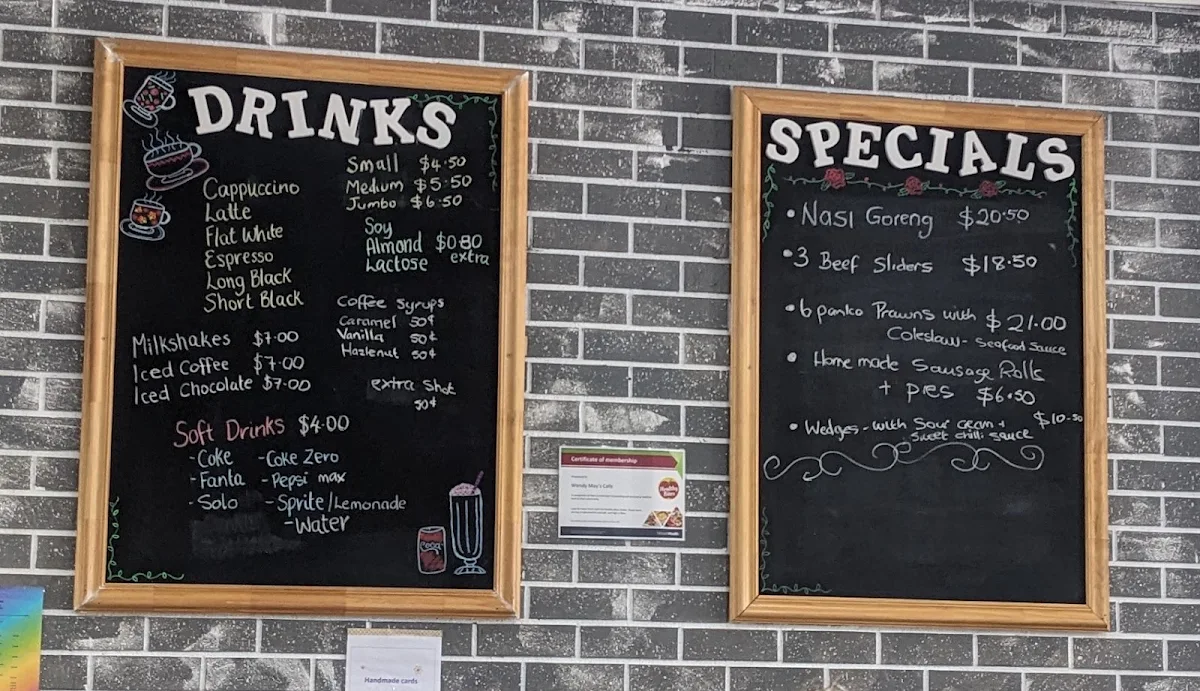 DRINKS
Small $4.50
Medium $5.50
Jumbo $6.50
Cappuccino
Latte
Flat White
Espresso
Long Black
Short Black
Soy
Almond $0.80
Lactose extra
Coffee Syrups
Caramel 50¢
Vanilla 50¢
Hazlenut 50¢
extra Shot
50¢
Milkshakes $7.00
Iced Coffee $7.00
Iced Chocolate $7.00
Soft Drinks $4.00
- Coke - Coke Zero
- Fanta - Pepsi max
- Solo - Sprite/Lemonade
- Water
SPECIALS
• Nasi Goreng $20.50
• 3 Beef Sliders $18.50
• 6 panko Prawns with $21.00
Coleslaw - Seafood Sauce
• Home made Sausage Rolls
+ pies $6.50
• Wedges - with Sour cream + $10.50
Sweet chilli sauce
Certificate of membership
Wendy May's Café
Handmade cards